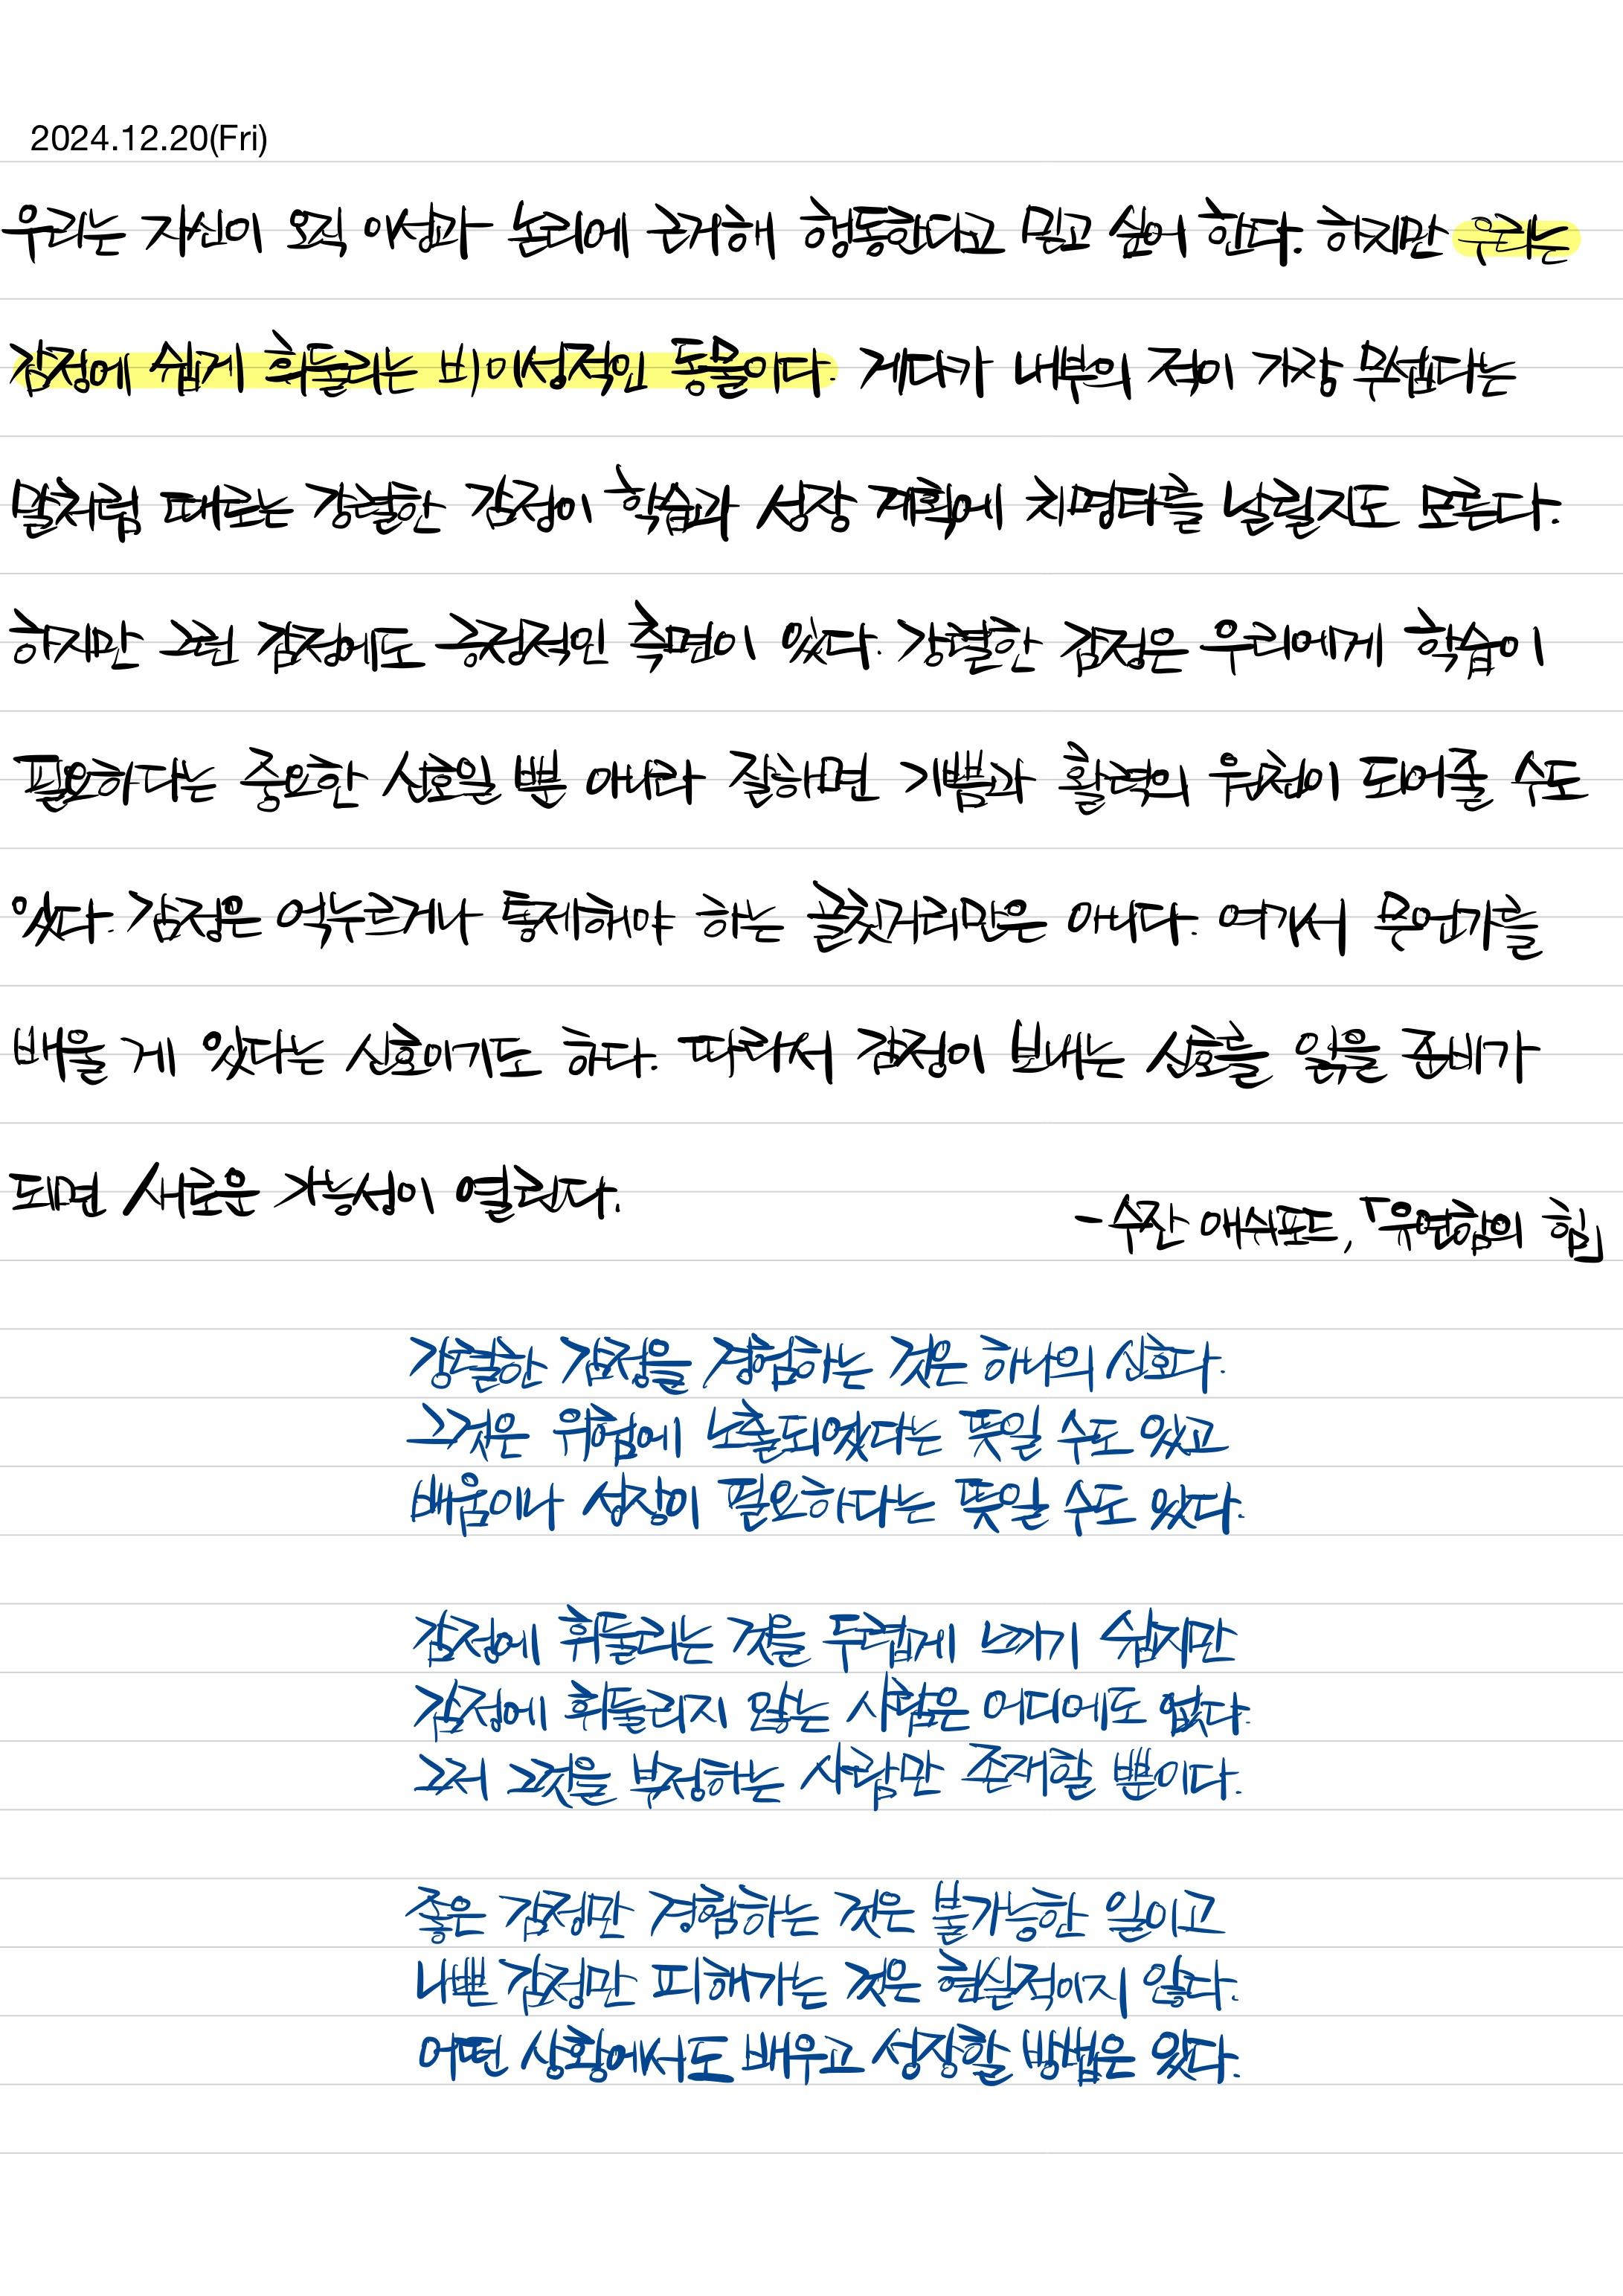 2024.12.20(Fri)
우리는 자신이 오직 이성과 논리에 근거해 행동한다고 믿고 싶어 한다. 하지만 우리는
감정에 쉽게 휘둘리는 비이성적인 동물이다. 게다가 내부의 적이 가장 무섭다는
말처럼 때로는 강렬한 감정이 학습과 성장 계획에 치명타를 날릴지도 모른다.
하지만 그런 감정에도 긍정적인 측면이 있다. 강렬한 감정은 우리에게 학습이
필요하다는 중요한 신호일 뿐 아니라 잘하면 기쁨과 활력의 원천이 되어줄 수도
있다. 감정은 억누르거나 통제해야 하는 골칫거리만은 아니다. 여기서 무언가를
배울 게 있다는 신호이기도 하다. 따라서 감정이 보내는 신호를 읽을 준비가
되면 새로운 가능성이 열린다.
- 수잔 애쉬포드, 「유연함의 힘」
강렬한 감정을 경험하는 것은 하나의 신호다.
그것은 위험에 노출되었다는 뜻일 수도 있고
배움이나 성장이 필요하다는 뜻일 수도 있다.
감정에 휘둘리는 것을 두렵게 느끼기 쉽지만
감정에 휘둘리지 않는 사람은 어디에도 없다.
그저 그것을 부정하는 사람만 존재할 뿐이다.
좋은 감정만 경험하는 것은 불가능한 일이고
나쁜 감정만 피해가는 것은 현실적이지 않다.
어떤 상황에서도 배우고 성장할 방법은 있다.